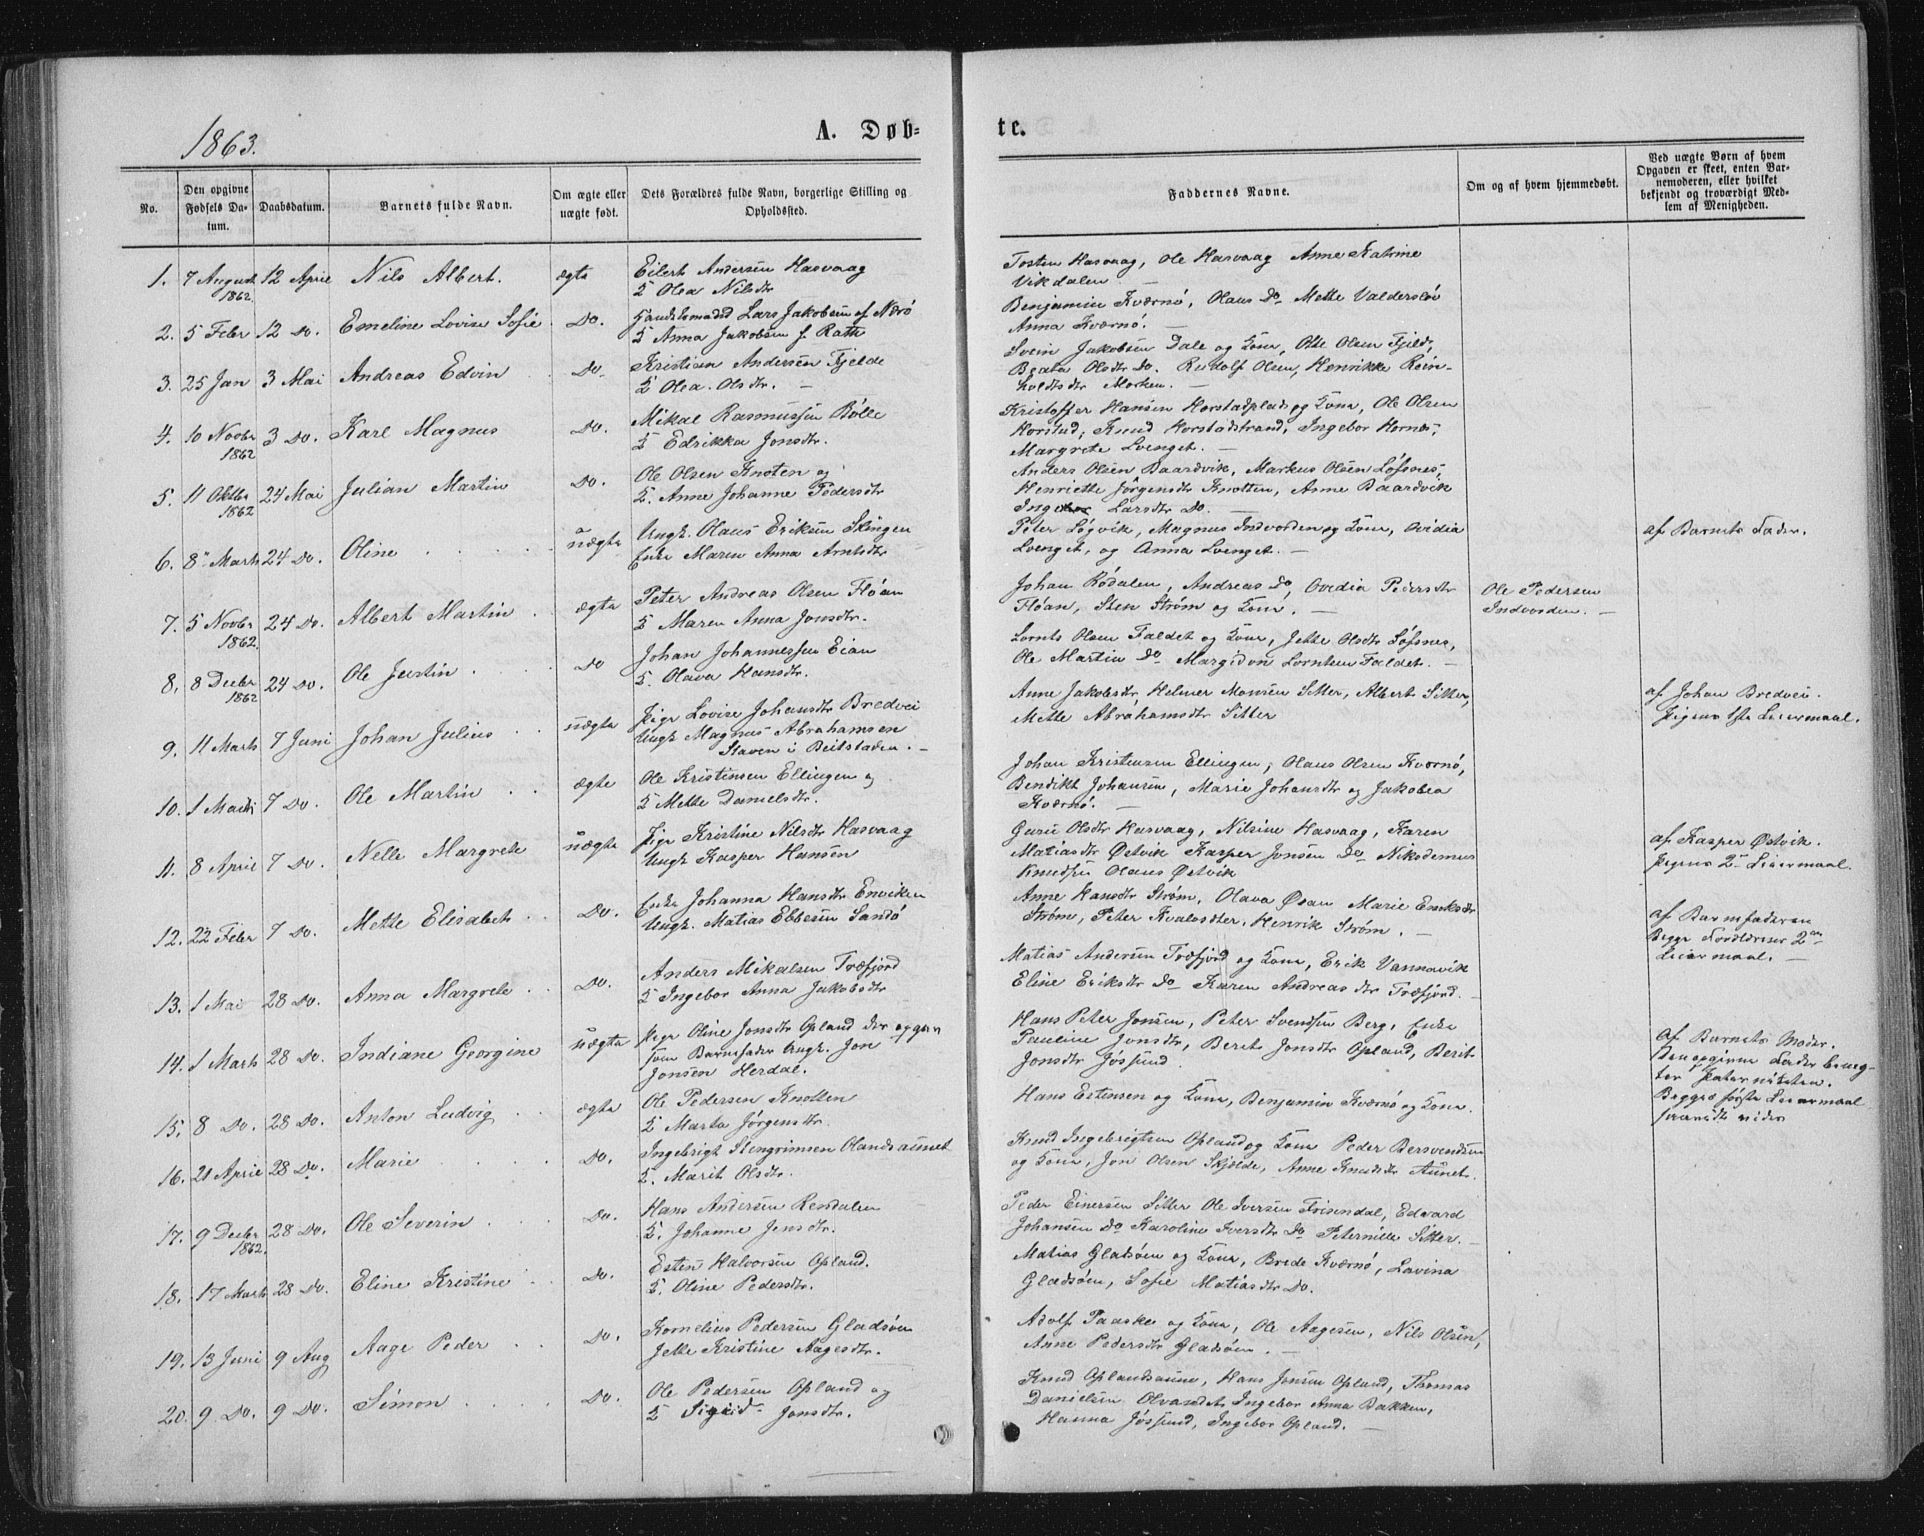 1863.
A. Døb-
te.
No.
Den opgivne Fødsels Datum.
Daabsdatum.
Barnets fulde Navn.
Om ægte eller uægte født.
Dets Forældres fulde Navn, borgerlige Stilling og Opholdssted.
Faddernes Navne.
Om og af hvem hjemmedøbt.
Ved uægte Børn af hvem Opgaven er skeet, enten Barnemoderen, eller hvilket bekjendt og troværdigt Medlem af Menigheden.
1. 7 August 1862 12 April Nils Albert. ægte
Eilert Andersen Hasvaag
& Olea Nilsdtr
Tosten Hasvaag, Ole Hasvaag Anne Katrine
Vikdalen
2. 5 Feber 12 Do. Emeline Lovise Sofie. Do.
Handelsmand Lars Jakobsen af Nærø
& Anna Jakobsen f. Rath
Benjamin Kværnø, Olaus Do Mette Valdersløv
Anna Kværnø.
3. 25 Jan 3 Mai Andreas Edvin Do.
Kristian Andersen Fjelde
& Olea Olsdtr.
Svein Jakobsen Dale og Kone, Otte Olsen Fjeld,
Beata Olsdtr Do. Rudolf Olsen, Henrikke Rein-
holdtsdtr Morken.
4. 10 Novbr 1862 3 Do. Karl Magnus Do.
Mikal Rasmussen Rølle
& Edrikka Jonsdtr.
Kristoffer Hansen Horstadplads og Kone, Ole Olsen
Horstad, Knud Horstadstrand, Ingebor Hornes,
Margrete Lvenget.
5. 11 Oktbr 1862 24 Mai Julian Martin Do.
Ole Olsen Knoten og
K. Anne Johanne Pedersdtr
Anders Olsen Baardvik, Markus Olsen Løfsnes,
Henriette Jørgensdtr Knotten, Anne Baardvik
Ingebor Larsdtr Do.
6. 8 Marts 24 Do. Oline uægte
Ungk. Olaus Eriksen Skingen
Enke Maren Anna Arntsdtr
Peter Løgvik, Magnus Indvorden og Kone, Ovidia
Lvenget, og Anna Lvenget.
af Barnets Fader.
7. 5 Novbr 1862. 24 Do. Albert Martin ægte
Peter Andreas Olsen Fløan
& Maren Anna Jonsdtr.
Johan Rødalen, Andreas Do, Ovidia Pedersdtr
Fløan, Sten Strøm og Kone.
Ole Pedersen
Indvorden.
8. 8 Decbr 1862 24 Do. Ole Justin Do
Johan Johannessen Eian
K. Olava Hansdtr.
Lornts Olsen Faldet og Kone, Jette Olsdtr Løfsnes,
Ole Martin Do Margidon Lorntsen Faldet.
9. 11 Marts 7 Juni Johan Julius uægte
Pige Lovise Johansdtr Bredvei
Ungk. Magnus Abrahamsen
Staven i Beitstaden.
Anne Jakobsdtr Helmer Monsen Sitter, Albert Sitter,
Mette Abrahamsdtr Sitter
af Johan Bredvei.
Pigens 1ste Leiermaal.
10. 1 Marts 7 Do. Ole Martin ægte
Ole Kristensen Ellingen og
K Mette Danielsdtr.
Johan Kristensen Ellingen, Olaus Olsen Kværnø,
Bendikt Johansen, Marie Johansdtr og Jakobea
Kværnø.
11. 8 April 7 Do. Nelle Margrete uægte
Pige Kristine Nilsdtr Hasvaag
Ungk Kasper Hansen
Guru Olsdtr Hasvaag, Nilsine Hasvaag, Karen
Matiasdtr Østvik Kasper Jonsen Do Nikodemus
Knudsen Olaus Østvik
af Kasper Østvik.
Pigens 2det Leiermaal.
12. 22 Feber 7 Do. Mette Elisabet Do.
Enke Johanna Hansdtr Enviken
Ungk. Matias Ebbesen Sandø
Anne Hansdtr Strøm, Olava Osan Marie Eriksdtr
Strøm, Peter Kvalosæter, Henrik Strøm.
af Barnefaderen
Begge Forældrenes 2det
Leiermaal.
13. 1 Mai 28 Do. Anna Margrete Do.
Anders Mikalsen Træfjord
& Ingebor Anna Jakobsdtr
Matias Andersen Træfjord og Kone, Erik Vannavik
Eline Eriksdtr Do Karen Andreasdtr Træfjord.
14. 1 Marts 28 Do. Indiane Georgine uægte
Pige Oline Jonsdtr Opland der opgav
som Barnefader Ungk. Jon
Jonsen Herdal.
Hans Peter Jonsen, Peter Svendsen Berg, Enke
Pauline Jonsdtr, Berit Jonsdtr Opland, Berit
Jonsdtr Jøssund.
af Barnets Moder.
Den opgivne Fader benæg-
ter Paterniteten.
Begges første Leiermaal
15. 8 Do. 28 Do. Anton Ludvig ægte
Ole Pedersen Knotten
& Marta Jørgensdtr.
Hans Estensen og Kone, Benjamin Kværnø og Kone.
16. 21 April 28 Do. Marie Do.
Ingebrigt Stengrimsen Olandsaunet
K. Marit Olsdtr.
Knud Ingebrigtsen Opland og Kone Peder Bersvendsen
og Kone, Jon Olsen Skjelde, Anne Knudsdtr Aunet.
17. 9 Decbr 1862. 28 Do. Ole Severin Do.
Hans Andersen Rendalen
K. Johanne Jensdtr.
Peder Einersen Sitter Ole Iversen Friisendal, Edvard
Johansen Do Karoline Iversdtr Do Petternille Sitter.
18. 17 Marts 28 Do. Eline Kristine Do.
Esten Halvorsen Opland.
K. Oline Pedersdtr.
Matias Gladsøen og Kone, Brede Kværnø, Lavina
Gladsøen, Sofie Matiasdtr Do.
19. 13 Juni 9 Aug Aage Peder Do.
Kornelius Pedersen Gladsøen
Jette Kristine Aagesdtr.
Adolf Paaske og Kone, Ole Aagesen, Nils Olsen,
Anne Pedersdtr Gladsøen.
20. 9 Do. 9 Do. Simon Do.
Ole Pedersen Opland og
K Sigrid Jonsdtr.
Knud Oplandsaune, Hans Jonsen Opland, Thomas
Danielsen Olvandet, Ingebor Anna Bakken,
Hanna Jøssund, Ingebor Opland.